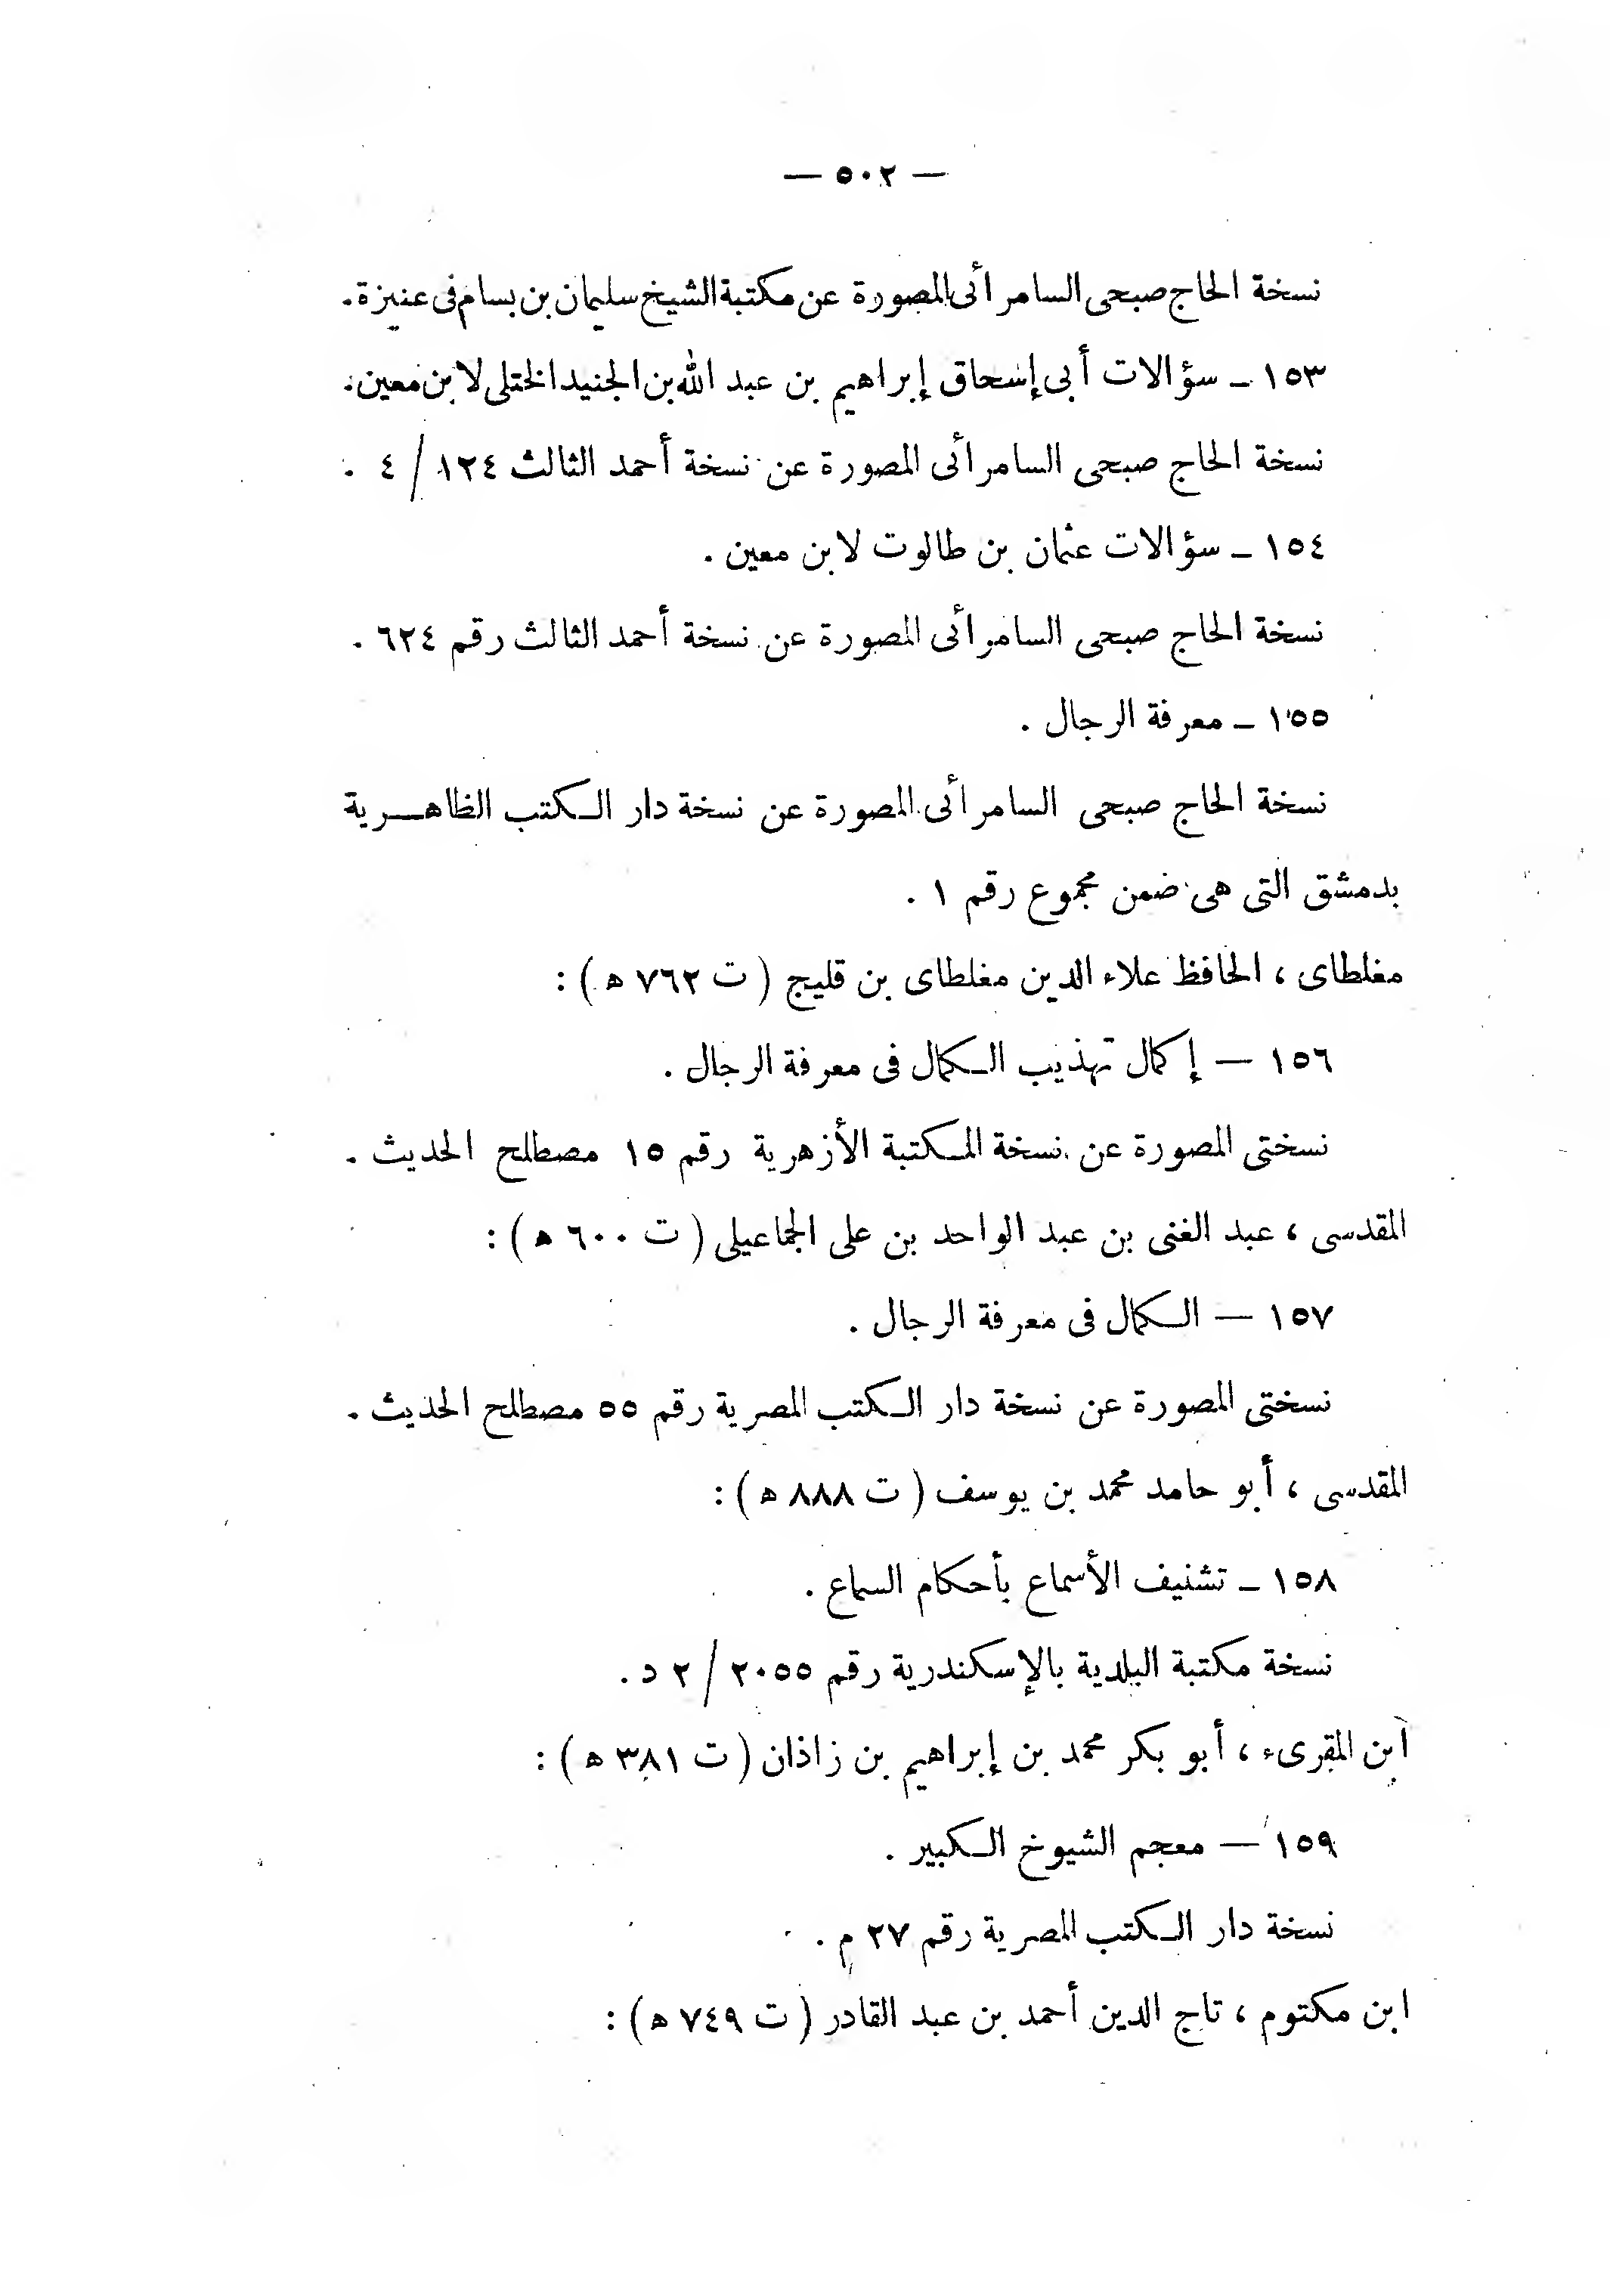 — ٥٠٢ —
نسخة الحاج صبحى السامرائى المصورة عن مكتبة الشيخ سليمان بن بسام فى عنيزة .
١٥٣ ـ سؤالات أبى إسحاق إبراهيم بن عبد الله بن الجنيد الختلى لابن معين .
نسخة الحاج صبحى السامرائى المصورة عن نسخة أحمد الثالث ١٢٤ / ٤ .
١٥٤ ـ سؤالات عثمان بن طالوت لابن معين .
نسخة الحاج صبحى السامرائى المصورة عن نسخة أحمد الثالث رقم ٦٢٤ .
١٥٥ ـ معرفة الرجال .
نسخة الحاج صبحى السامرائى المصورة عن نسخة دار الكتب الظاهرية
بدمشق التى هى ضمن مجموع رقم ١ .
مغلطاى ، الحافظ علاء الدين مغلطاى بن قليج ( ت ٧٦٢ ه ) :
١٥٦ — إكمال تهذيب الكمال فى معرفة الرجال .
نسختى المصورة عن نسخة المكتبة الأزهرية رقم ١٥ مصطلح الحديث .
المقدسى ، عبد الغنى بن عبد الواحد بن على الجماعيلى ( ت ٦٠٠ ه ) :
١٥٧ — الكمال فى معرفة الرجال .
نسختى المصورة عن نسخة دار الكتب المصرية رقم ٥٥ مصطلح الحديث .
المقدسى ، أبو حامد محمد بن يوسف ( ت ٨٨٨ ه ) :
١٥٨ ـ تشنيف الأسماع بأحكام السماع .
نسخة مكتبة البلدية بالإسكندرية رقم ٢٠٥٥ / ٢ د .
ابن المقرىء ، أبو بكر محمد بن إبراهيم بن زاذان ( ت ٣٨١ ه ) :
١٥٩ — معجم الشيوخ الكبير .
نسخة دار الكتب المصرية رقم ٢٧ م .
ابن مكتوم ، تاج الدين أحمد بن عبد القادر ( ت ٧٤٩ ه ) :